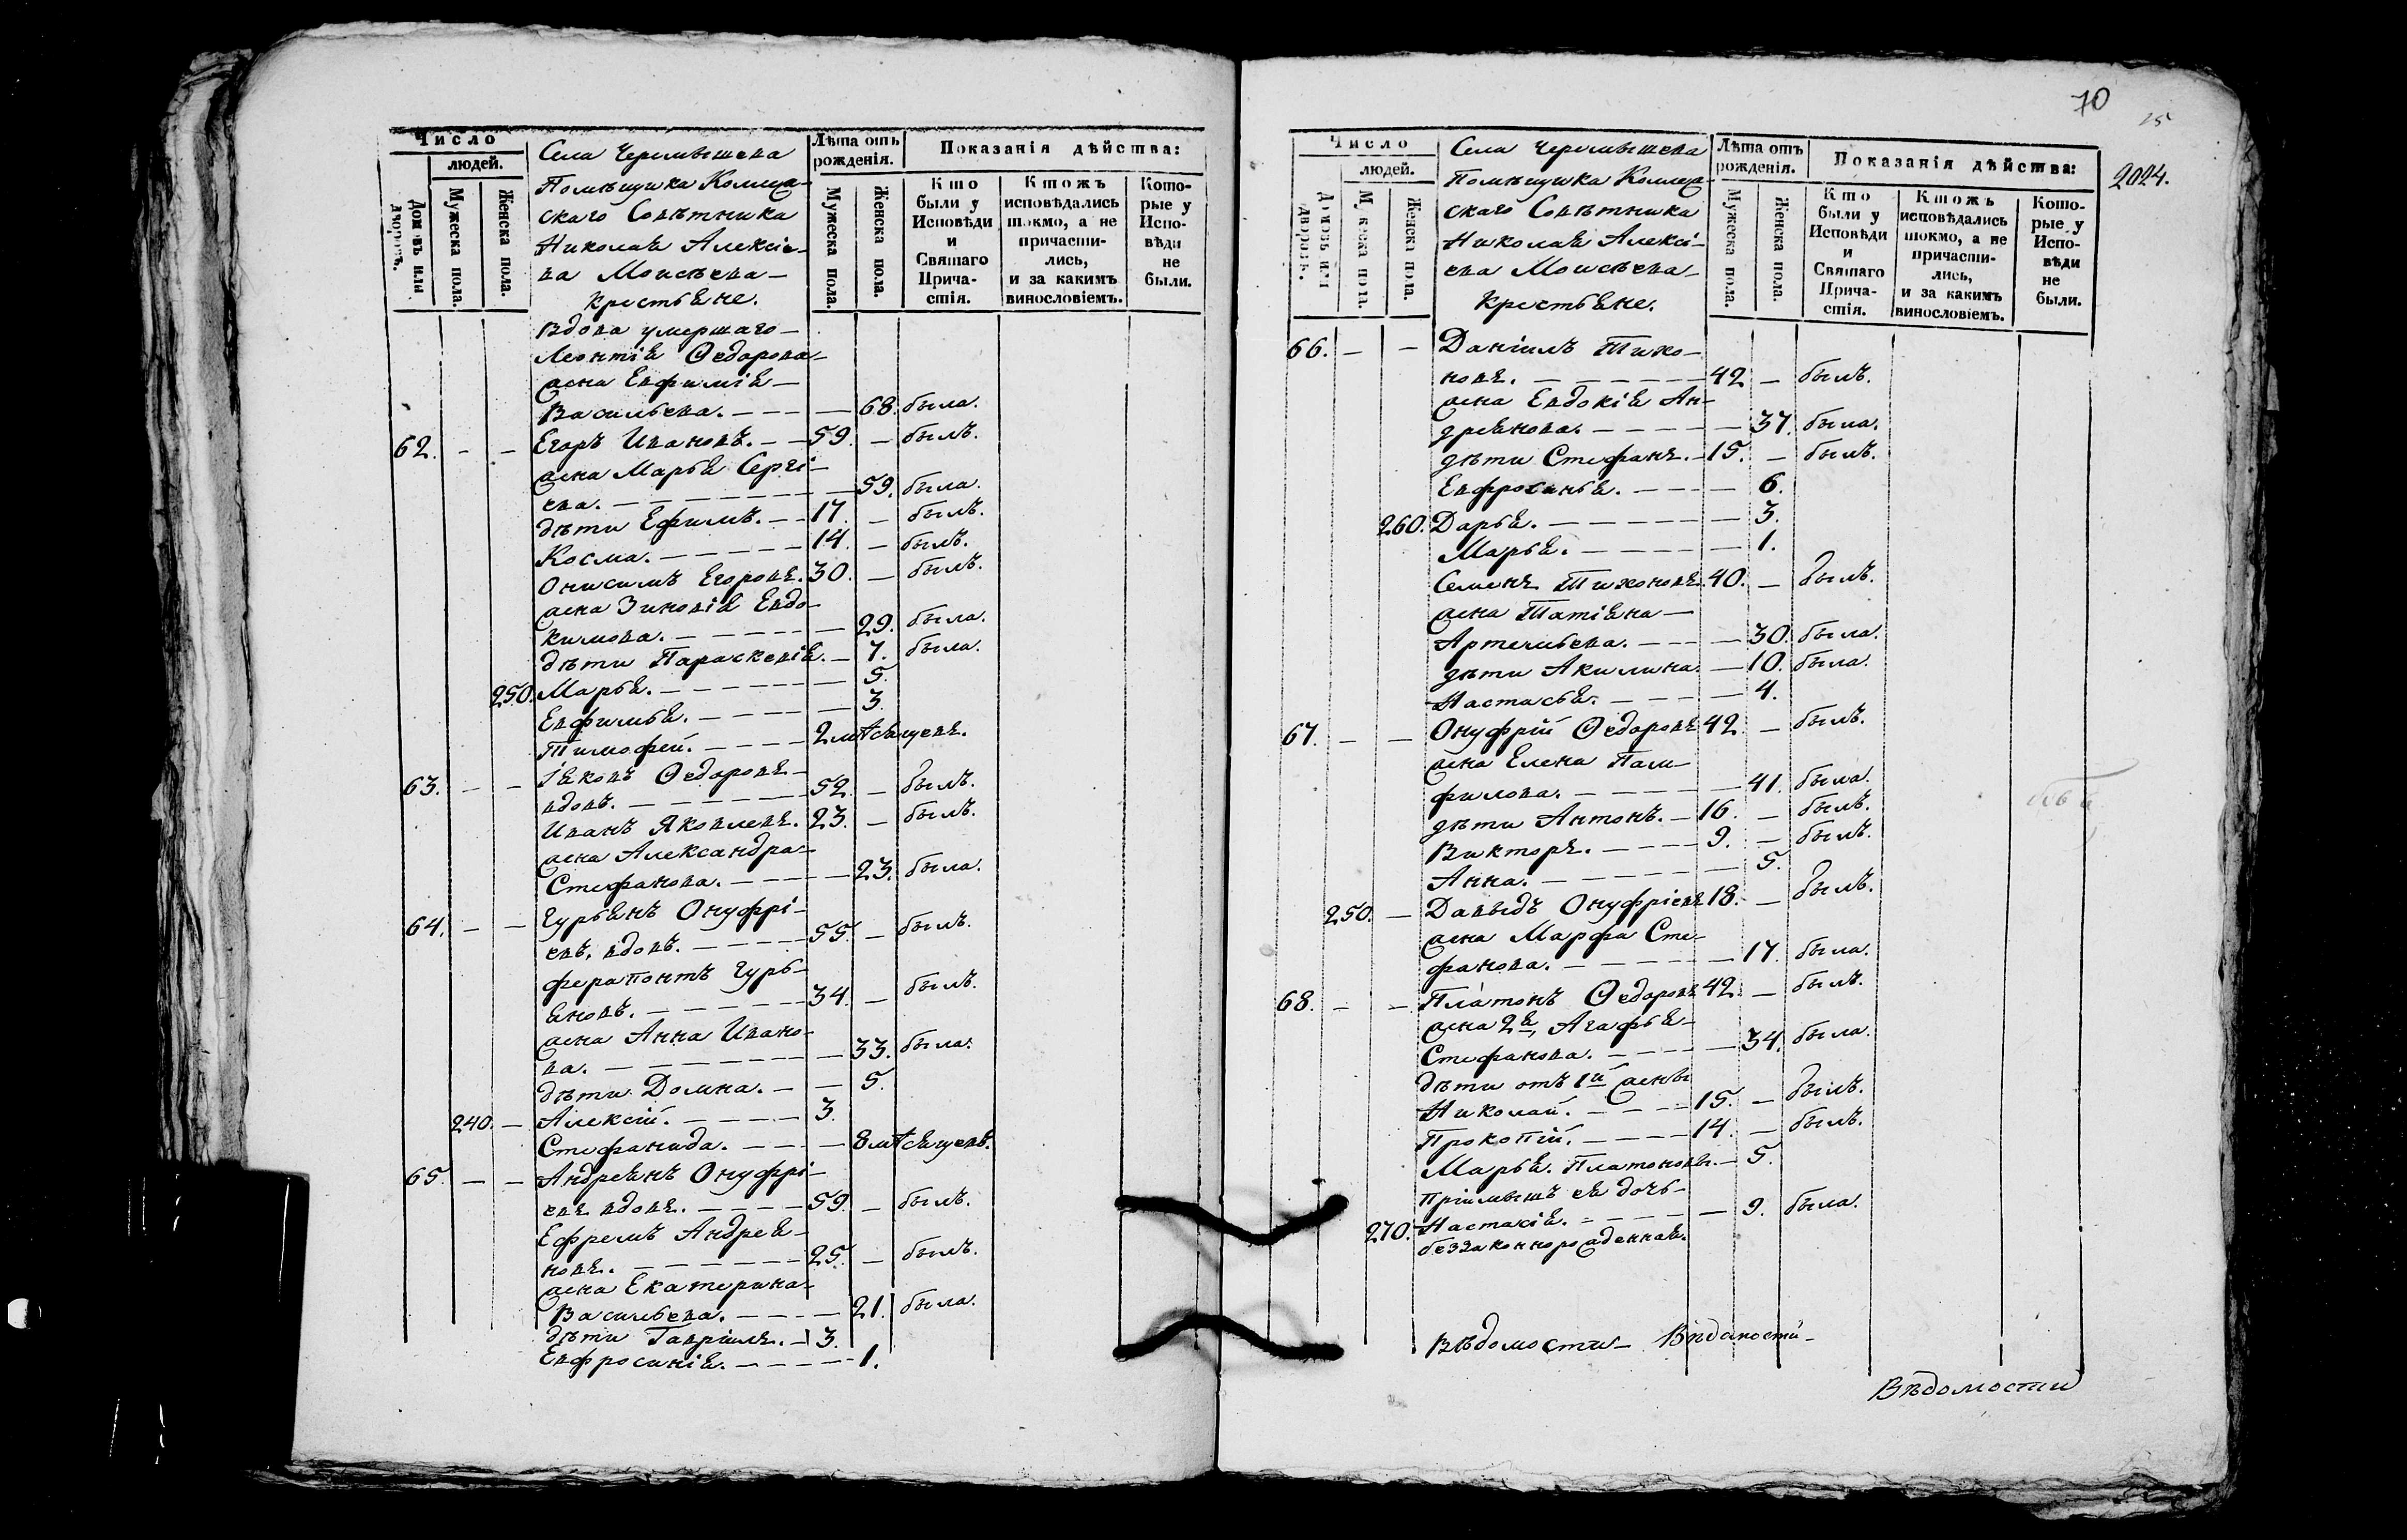 Число
людей.
Домовъ или дворовъ.
Мужеска пола.
Женска пола.
Села Черемышева
Помѣщика Коллеж-
скаго Совѣтника
Николая Алексіе-
ва Моисѣева
крестьяне.
Лѣта отъ рожденія.
Мужеска пола.
Женска пола.
Показанія дѣйства:
Кто были у Исповѣди и Святаго Прича-стія.
Ктожъ исповѣдались токмо, а не причасти-лись, и за какимъ винословіемъ.
Кото-рые у Испо-вѣди не были.
Вдова умершаго
Леонтія Ѳедорова
жена Евфимія
Васильева. — 68. была.
62. — — Егоръ Ивановъ. 59. — былъ.
жена Марья Сергі-
ева. — 59. была.
дѣти Ефимъ. 17. — былъ.
Косма. 14. — былъ.
Онисимъ Егоровъ. 30. — былъ.
жена Зиновія Евдо-
кимова. — 29. была.
дѣти Параскевія. — 7. была.
250. Марья. — 5.
Евфимья. — 3.
Тимофей. 2 мѣсяцевъ.
63. — — Іяковъ Ѳедоровъ
вдовъ. 52. — былъ.
Иванъ Яковлевъ. 23. — былъ.
жена Александра
Стефанова. — 23. была.
64. — — Гурьянъ Онуфрі-
евъ, вдовъ. 55. — былъ.
Ферапонтъ Гурь-
яновъ. 34. — былъ.
жена Анна Ивано-
ва. — 33. была.
дѣти Домна. — 5.
240. — Алексій. 3.
Стефанида. — 8 мѣсяцевъ.
65. — — Андреянъ Онуфрі-
евъ вдовъ. 59. — былъ.
Ефремъ Андрея-
новъ. 25. — былъ.
жена Екатерина
Васильева. — 21. была.
дѣти Гавріилъ. 3.
Евфросинія. — 1.
70
2024.
Число
людей.
Домовъ или дворовъ.
Мужеска пола.
Женска пола.
Села Черемышева
Помѣщика Коллеж-
скаго Совѣтника
Николая Алексі-
ева Моисѣева
Крестьяне.
Лѣта отъ рожденія.
Мужеска пола.
Женска пола.
Показанія дѣйства:
Кто были у Исповѣди и Святаго Прича-стія.
Ктожъ исповѣдались токмо, а не причасти-лись, и за какимъ винословіемъ.
Кото-рые у Испо-вѣди не были.
66. — — Даніилъ Тихо-
новъ. 42 — былъ.
жена Евдокія Ан-
дреянова. — 37. была.
дѣти Стефанъ. 15. — былъ.
Евфросинья. — 6.
260. Дарья. — 3.
Марья. — 1.
Семенъ Тихоновъ 40. — былъ.
жена Татіяна
Артемьева. — 30. была.
дѣти Акилина. — 10. была.
Настасья. — 4.
67. — — Онуфрій Ѳедоровъ 42. — былъ.
жена Елена Пам-
филова. — 41. была.
дѣти Антонъ. 16. — былъ.
Викторъ. 9. — былъ.
Анна. — 5.
250. — Давыдъ Онуфріевъ 18. — былъ.
жена Марфа Сте-
фанова. — 17. была.
68. — — Платонъ Ѳедоровъ 42. — былъ.
жена 2я, Агафья
Стефанова. — 34. была.
дѣти отъ 1й жены
Николай. 15. — былъ.
Прокопій. 14. — былъ.
Марья. Платоновы. — 5.
пріимышъ ея дочь
270. Настасія. — 9. была.
беззаконнорожденная.
Вѣдомости Вѣдомости
Вѣдомости